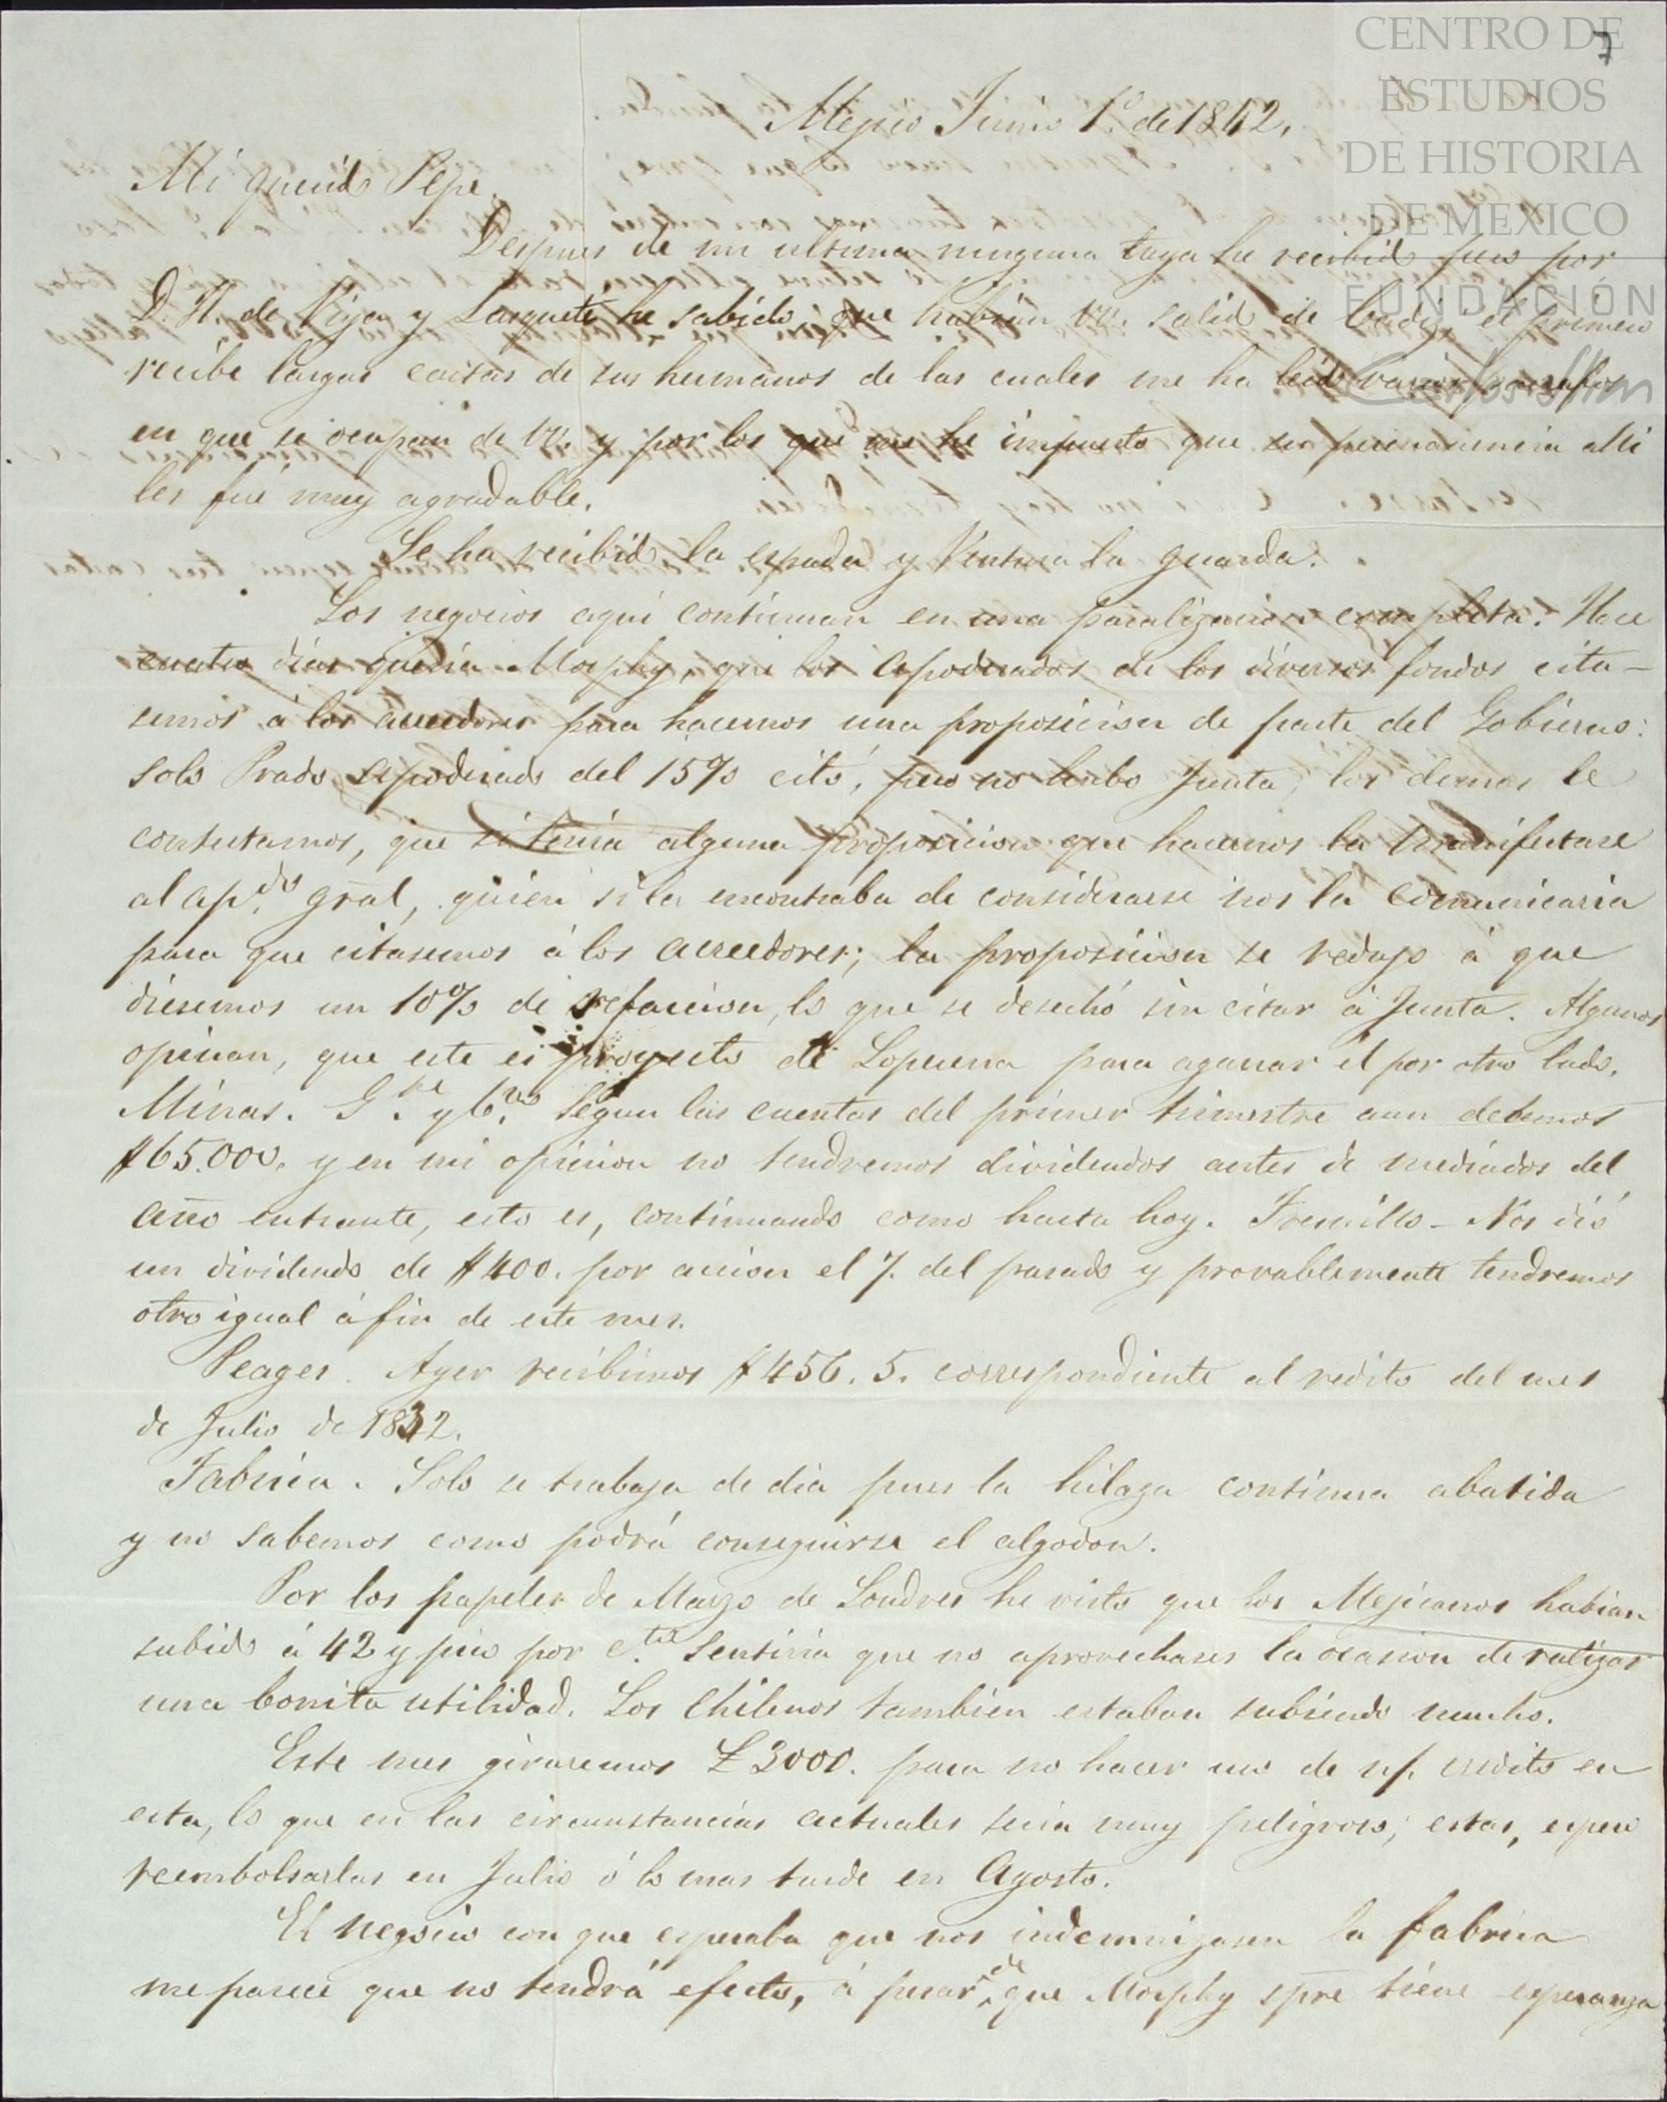 CENTRO DE
ESTUDIOS
DE HISTORIA
DE MEXICO
FUNDACIÓN
Carlos Slim
7
Mejico Junio 1º. de 1842.
Mi querido Pepe.
Despues de mi ultima ninguna tuya he recibido pero por
D. H. de Viya y Larquete he sabido que habian VV. salido de Cadiz, el primero
recibe largas cartas de sus hermanos de las cuales me ha leido varios parrafos
en que se ocupan de VV. y por los que me he impuesto que su permanencia alli
les fué muy agradable.
Se ha recibido la espada y Ventura la guarda.
Los negocios aqui continuan en una paralizacion completa. Hace
cuatro dias queria Morphy, que los apoderados de los diversos fondos cita-
semos á los acreedores para hacernos una proposicion de parte del Gobierno:
solo Prado apoderado del 15% citó, pero no hubo Junta, los demas le
contestamos, que si tenia alguna proposicion que hacernos la manifestase
al ap.do gral, quien si la encontraba de considerarse nos la comunicaria
para que citasemos á los acreedores; la proposicion se redujo á que
diesemos un 10% de refaccion, lo que se desechó sin citar á Junta. Algunos
opinan, que este es proyecto de Loperena para agarrar el por otro lado.
Minas. G.te y C.ros Segun las cuentas del primer trimestre aun debemos
$65.000. y en mi opinion no tendremos dividendos antes de mediados del
año entrante, esto es, continuando como hasta hoy. Fresnillo - Nos dió
un dividendo de $400. por accion el 7. del pasado y provablemente tendremos
otro igual á fin de este mes.
Peages. Ayer recibimos $456. 5. correspondiente al redito del mes
de Julio de 1842.
Fabrica. Solo se trabaja de dia pues la hilaza continua abatida
y no sabemos como podrá conseguirse el algodon.
Por los papeles de Marzo de Londres he visto que los Mejicanos habian
subido á 42 y pico por c.to Sentiria que no aprovechases la ocasion de ralizar
una bonita utilidad. Los Chilenos tambien estaban subiendo mucho.
Este mes giraremos £3000. para no hacer uso de n/. credito en
esta, lo que en las circunstancias actuales seria muy peligroso; estas, espero
reembolsarlas en Julio ó lo mas tarde en Agosto.
El negocio con que esperaba que nos indemnizasen la fabrica
me parece que no tendrá efecto, á pesar de que Morphy spre tiene esperanza